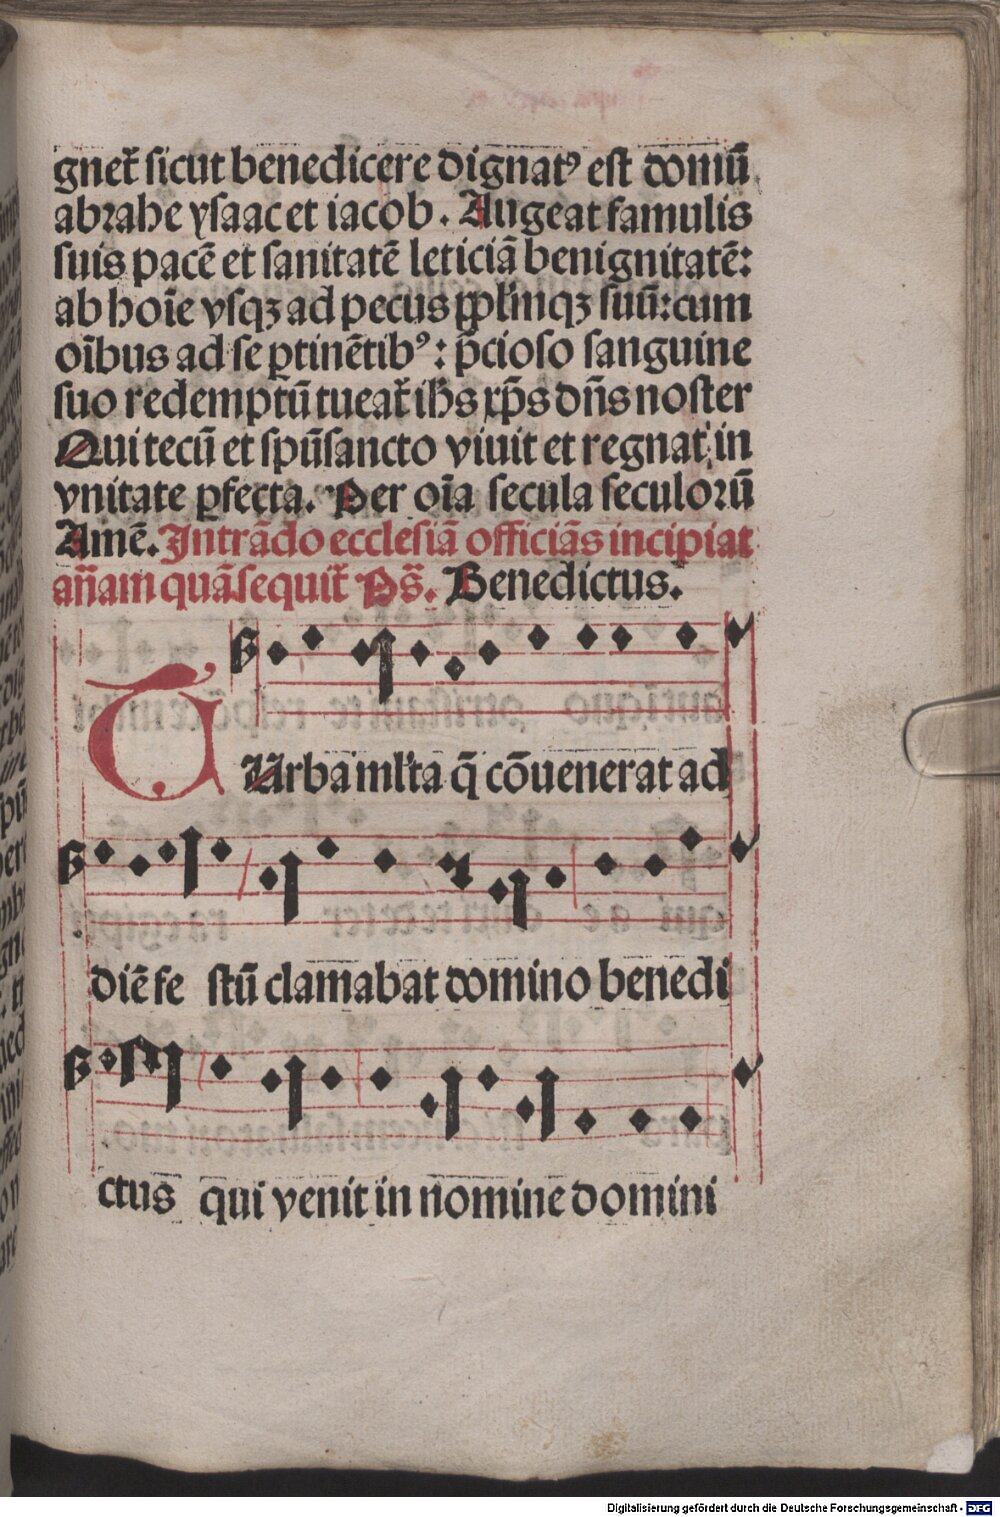 gnet᷑ sicut benedicere dignatꝰ est domū
abrahe ysaac et iacob. Augeat famulis
suis pacē et sanitatē leticiā benignitatē:
ab hoīe vsqꝫ ad pecus pplm̄qꝫ suū: cum
oībus ad se ꝑtinētibꝰ: p̄cioso sanguine
suo redemptū tueat᷑ ihs̄ xp̄s dn̄s noster
Qui tecū et spūsancto viuit et regnat in
vnitate ꝑfecta. Per oīa secula seculoꝛū
Amē. Intrādo ecclesiā officiās incipiat
an̄am quā sequit᷑ Ps̄. Benedictus.
TUrba ml̄ta q̄ cōuenerat ad
diē fe stū clamabat domino benedi
ctus qui venit in nomine domini
Digitalisierung gefördert durch die Deutsche Forschungsgemeinschaft - DFG